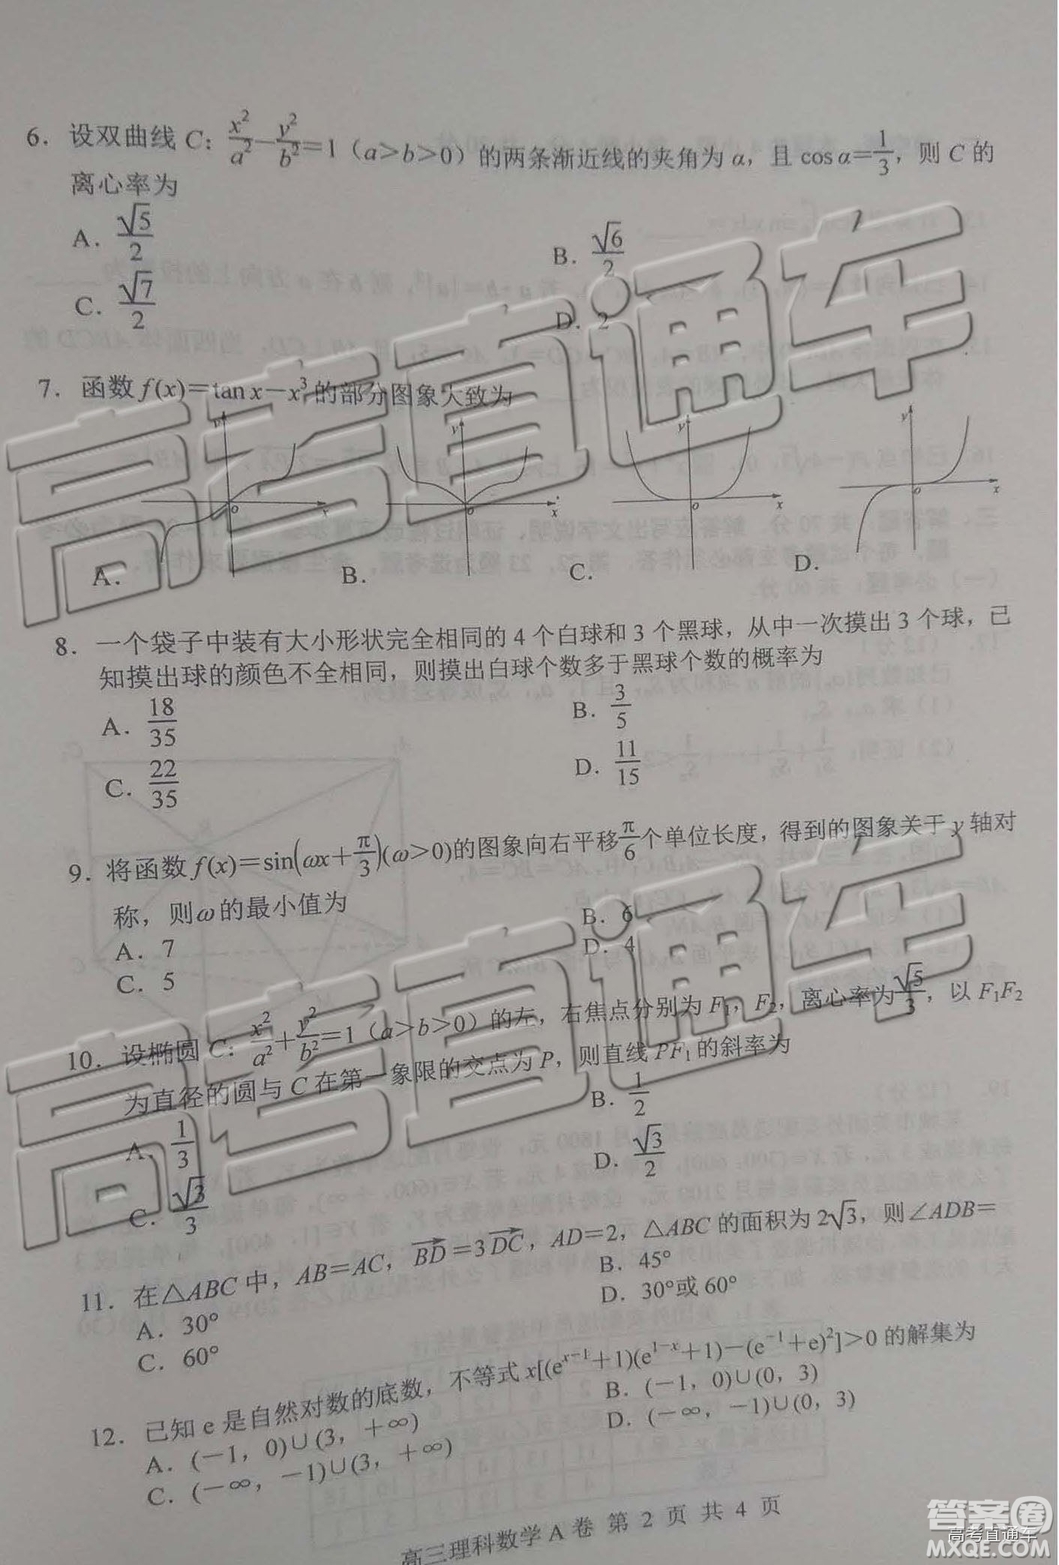 6．设双曲线 C：x²/a²−y²/b²=1（a>b>0）的两条渐近线的夹角为 α，且 cos α=1/3，则 C 的
离心率为
A．√5/2
B．√6/2
C．√7/2
D．2
7．函数 f(x)=tan x−x³ 的部分图象大致为
y y y y
O x O x O x O x
A． B． C． D．
8．一个袋子中装有大小形状完全相同的 4 个白球和 3 个黑球，从中一次摸出 3 个球，已
知摸出球的颜色不全相同，则摸出白球个数多于黑球个数的概率为
A．18/35
B．3/5
C．22/35
D．11/15
9．将函数 f(x)=sin(ωx+π/3)(ω>0)的图象向右平移π/6个单位长度，得到的图象关于 y 轴对
称，则ω的最小值为
A．7
B．6
C．5
D．4
10．设椭圆 C：x²/a²+y²/b²=1（a>b>0）的左，右焦点分别为 F₁，F₂，离心率为√5/3，以 F₁F₂
为直径的圆与 C 在第一象限的交点为 P，则直线 PF₁ 的斜率为
A．1/3
B．1/2
C．√3/3
D．√3/2
11．在△ABC 中，AB=AC，BD→=3DC→，AD=2，△ABC 的面积为 2√3，则∠ADB=
A．30°
B．45°
C．60°
D．30°或 60°
12．已知 e 是自然对数的底数，不等式 x[(eˣ⁻¹+1)(e¹⁻ˣ+1)−(e⁻¹+e)²]>0 的解集为
A．(−1，0)∪(3，+∞)
B．(−1，0)∪(0，3)
C．(−∞，−1)∪(3，+∞)
D．(−∞，−1)∪(0，3)
高三理科数学 A 卷 第 2 页 共 4 页
高考直通车
高考直通车
高考直通车
答案圈
高考直通车